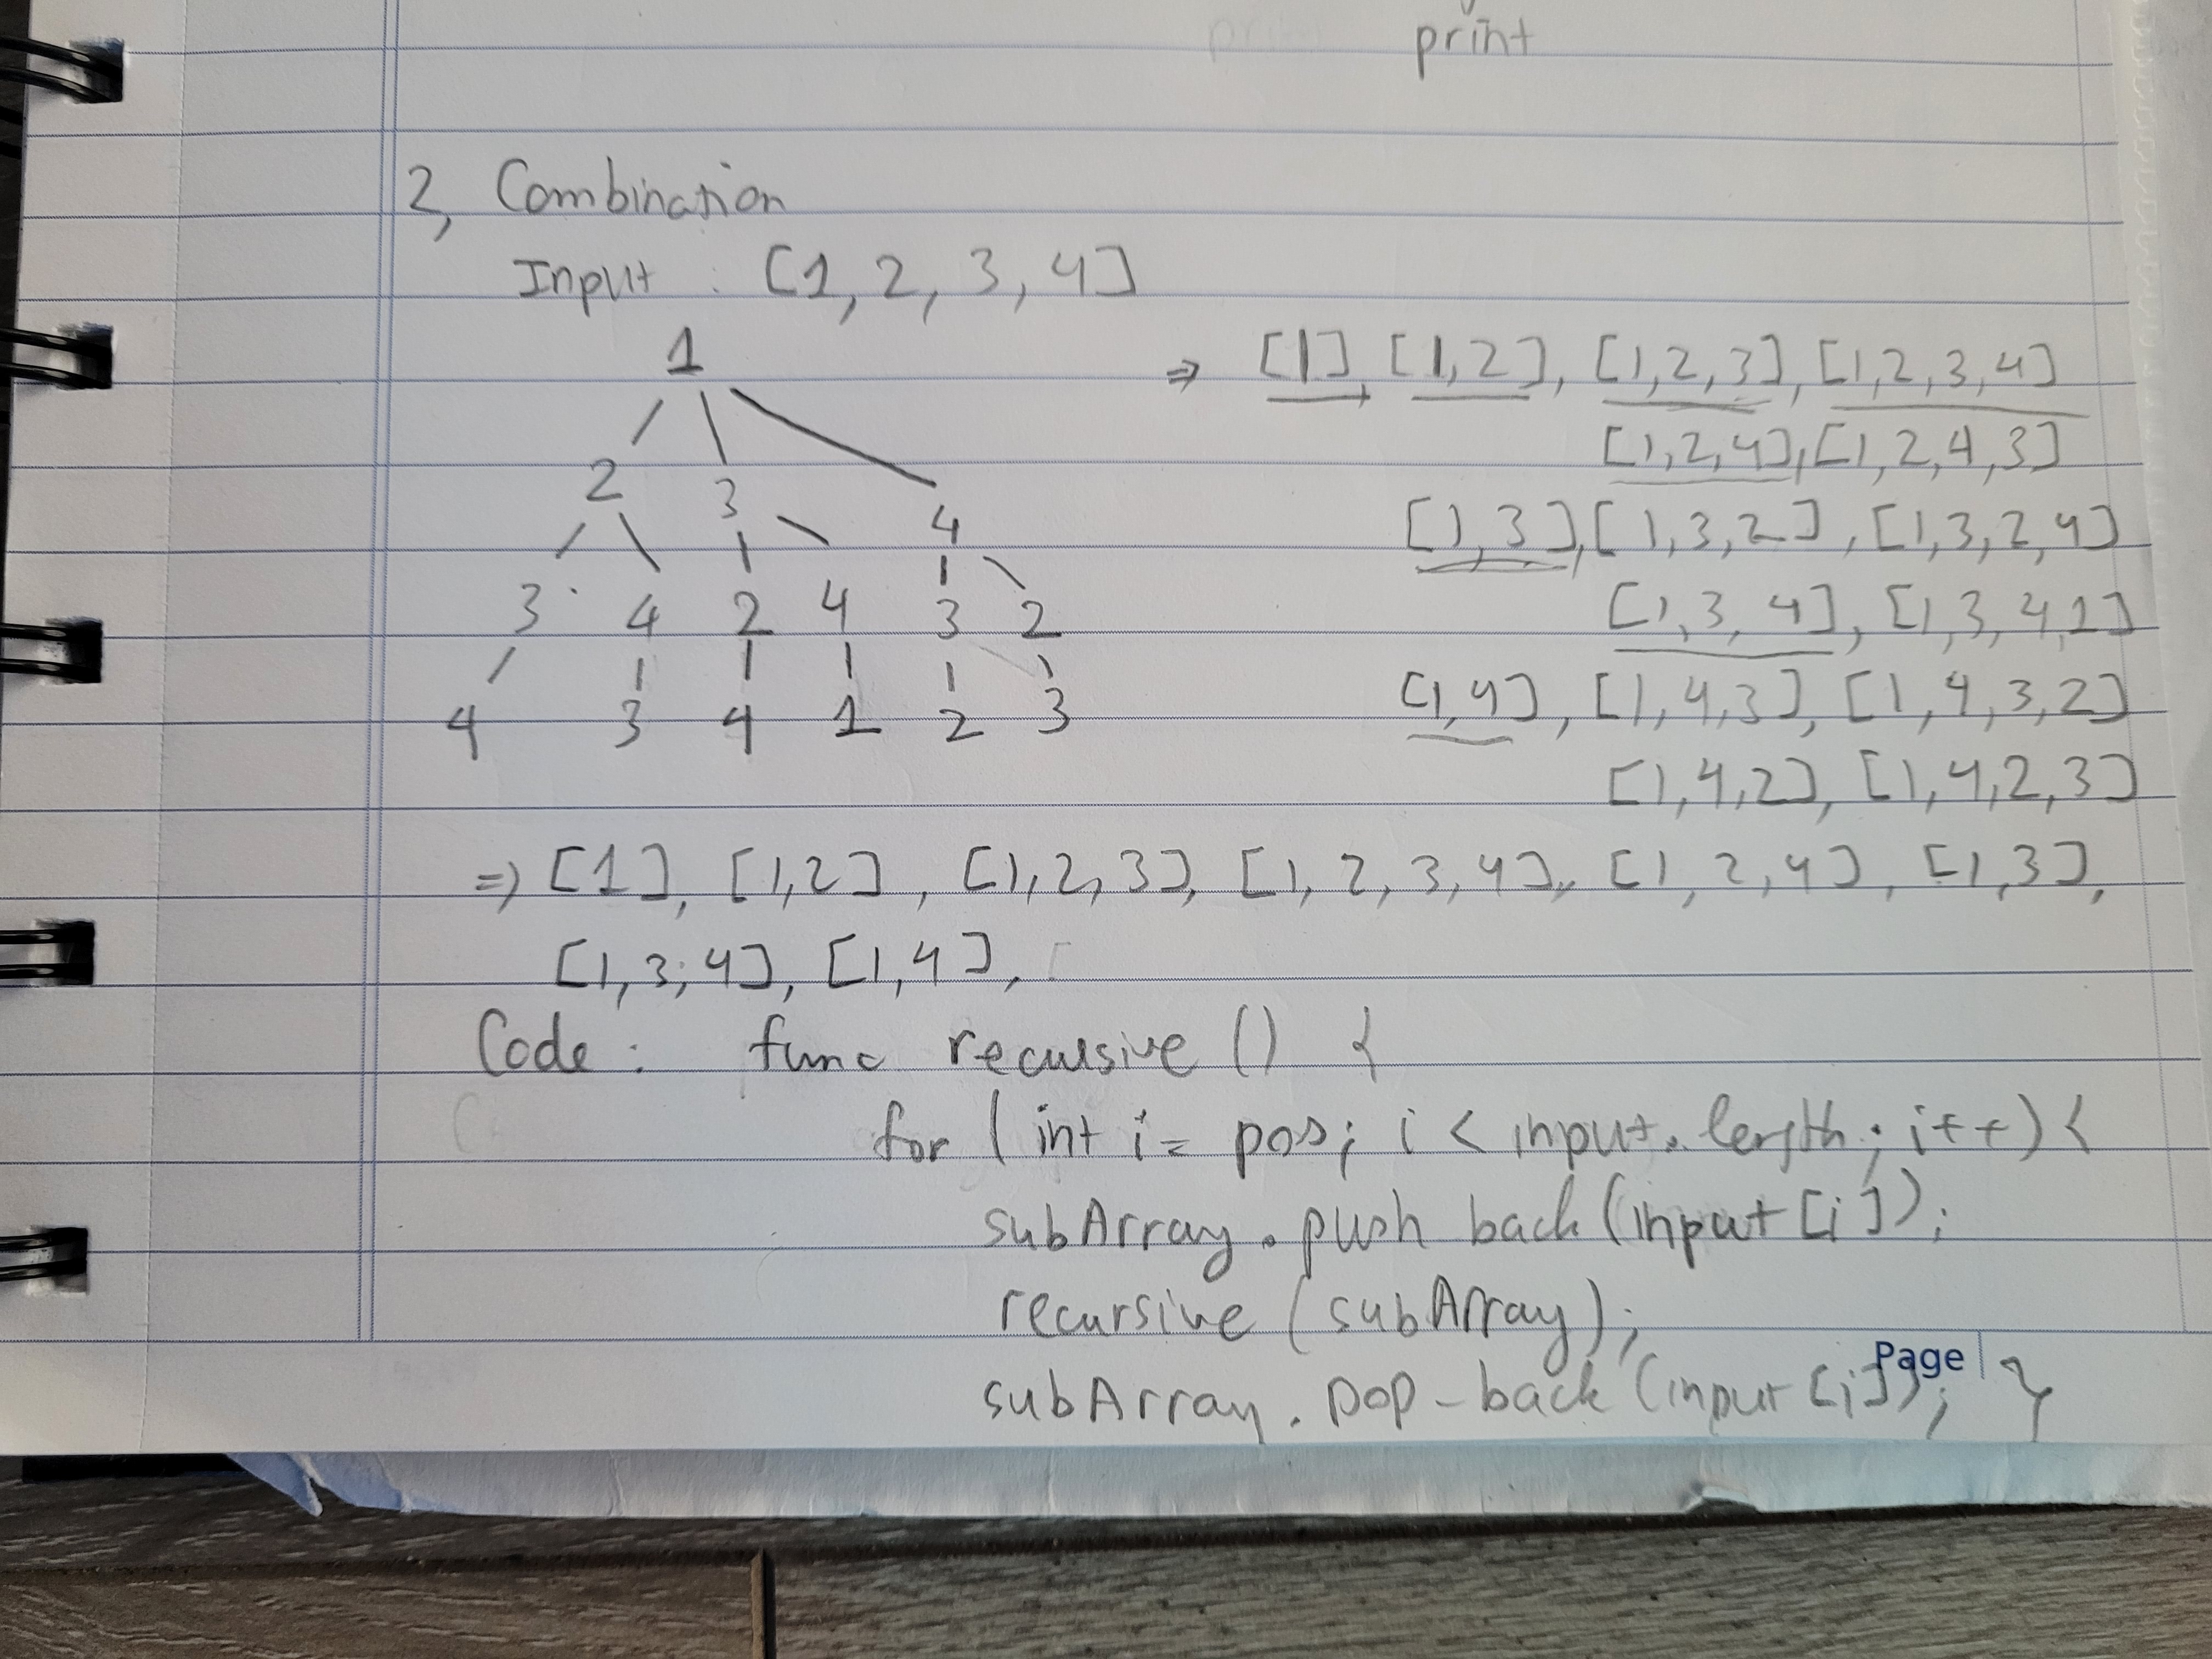 print
2, Combination
Input : [1, 2, 3, 4]
1
2 3 4
3 4 2 4 3 2
4 3 4 1 2 3
⇒ [1], [1,2], [1,2,3], [1,2,3,4]
[1,2,4], [1,2,4,3]
[1,3], [1,3,2], [1,3,2,4]
[1,3,4], [1,3,4,1]
[1,4], [1,4,3], [1,4,3,2]
[1,4,2], [1,4,2,3]
⇒ [1], [1,2], [1,2,3], [1,2,3,4], [1,2,4], [1,3],
[1,3,4], [1,4],
Code : func recursive () {
for (int i = pos; i < input.length; i++) {
subArray.push back (input[i]);
recursive (subArray);
subArray.pop-back (input[i]); }
Page